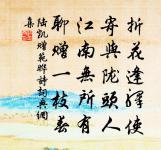 折花逢驛使
寄與隴頭人
江南無所有
聊贈一枝春
陸凱贈範曄詩詞典網
集